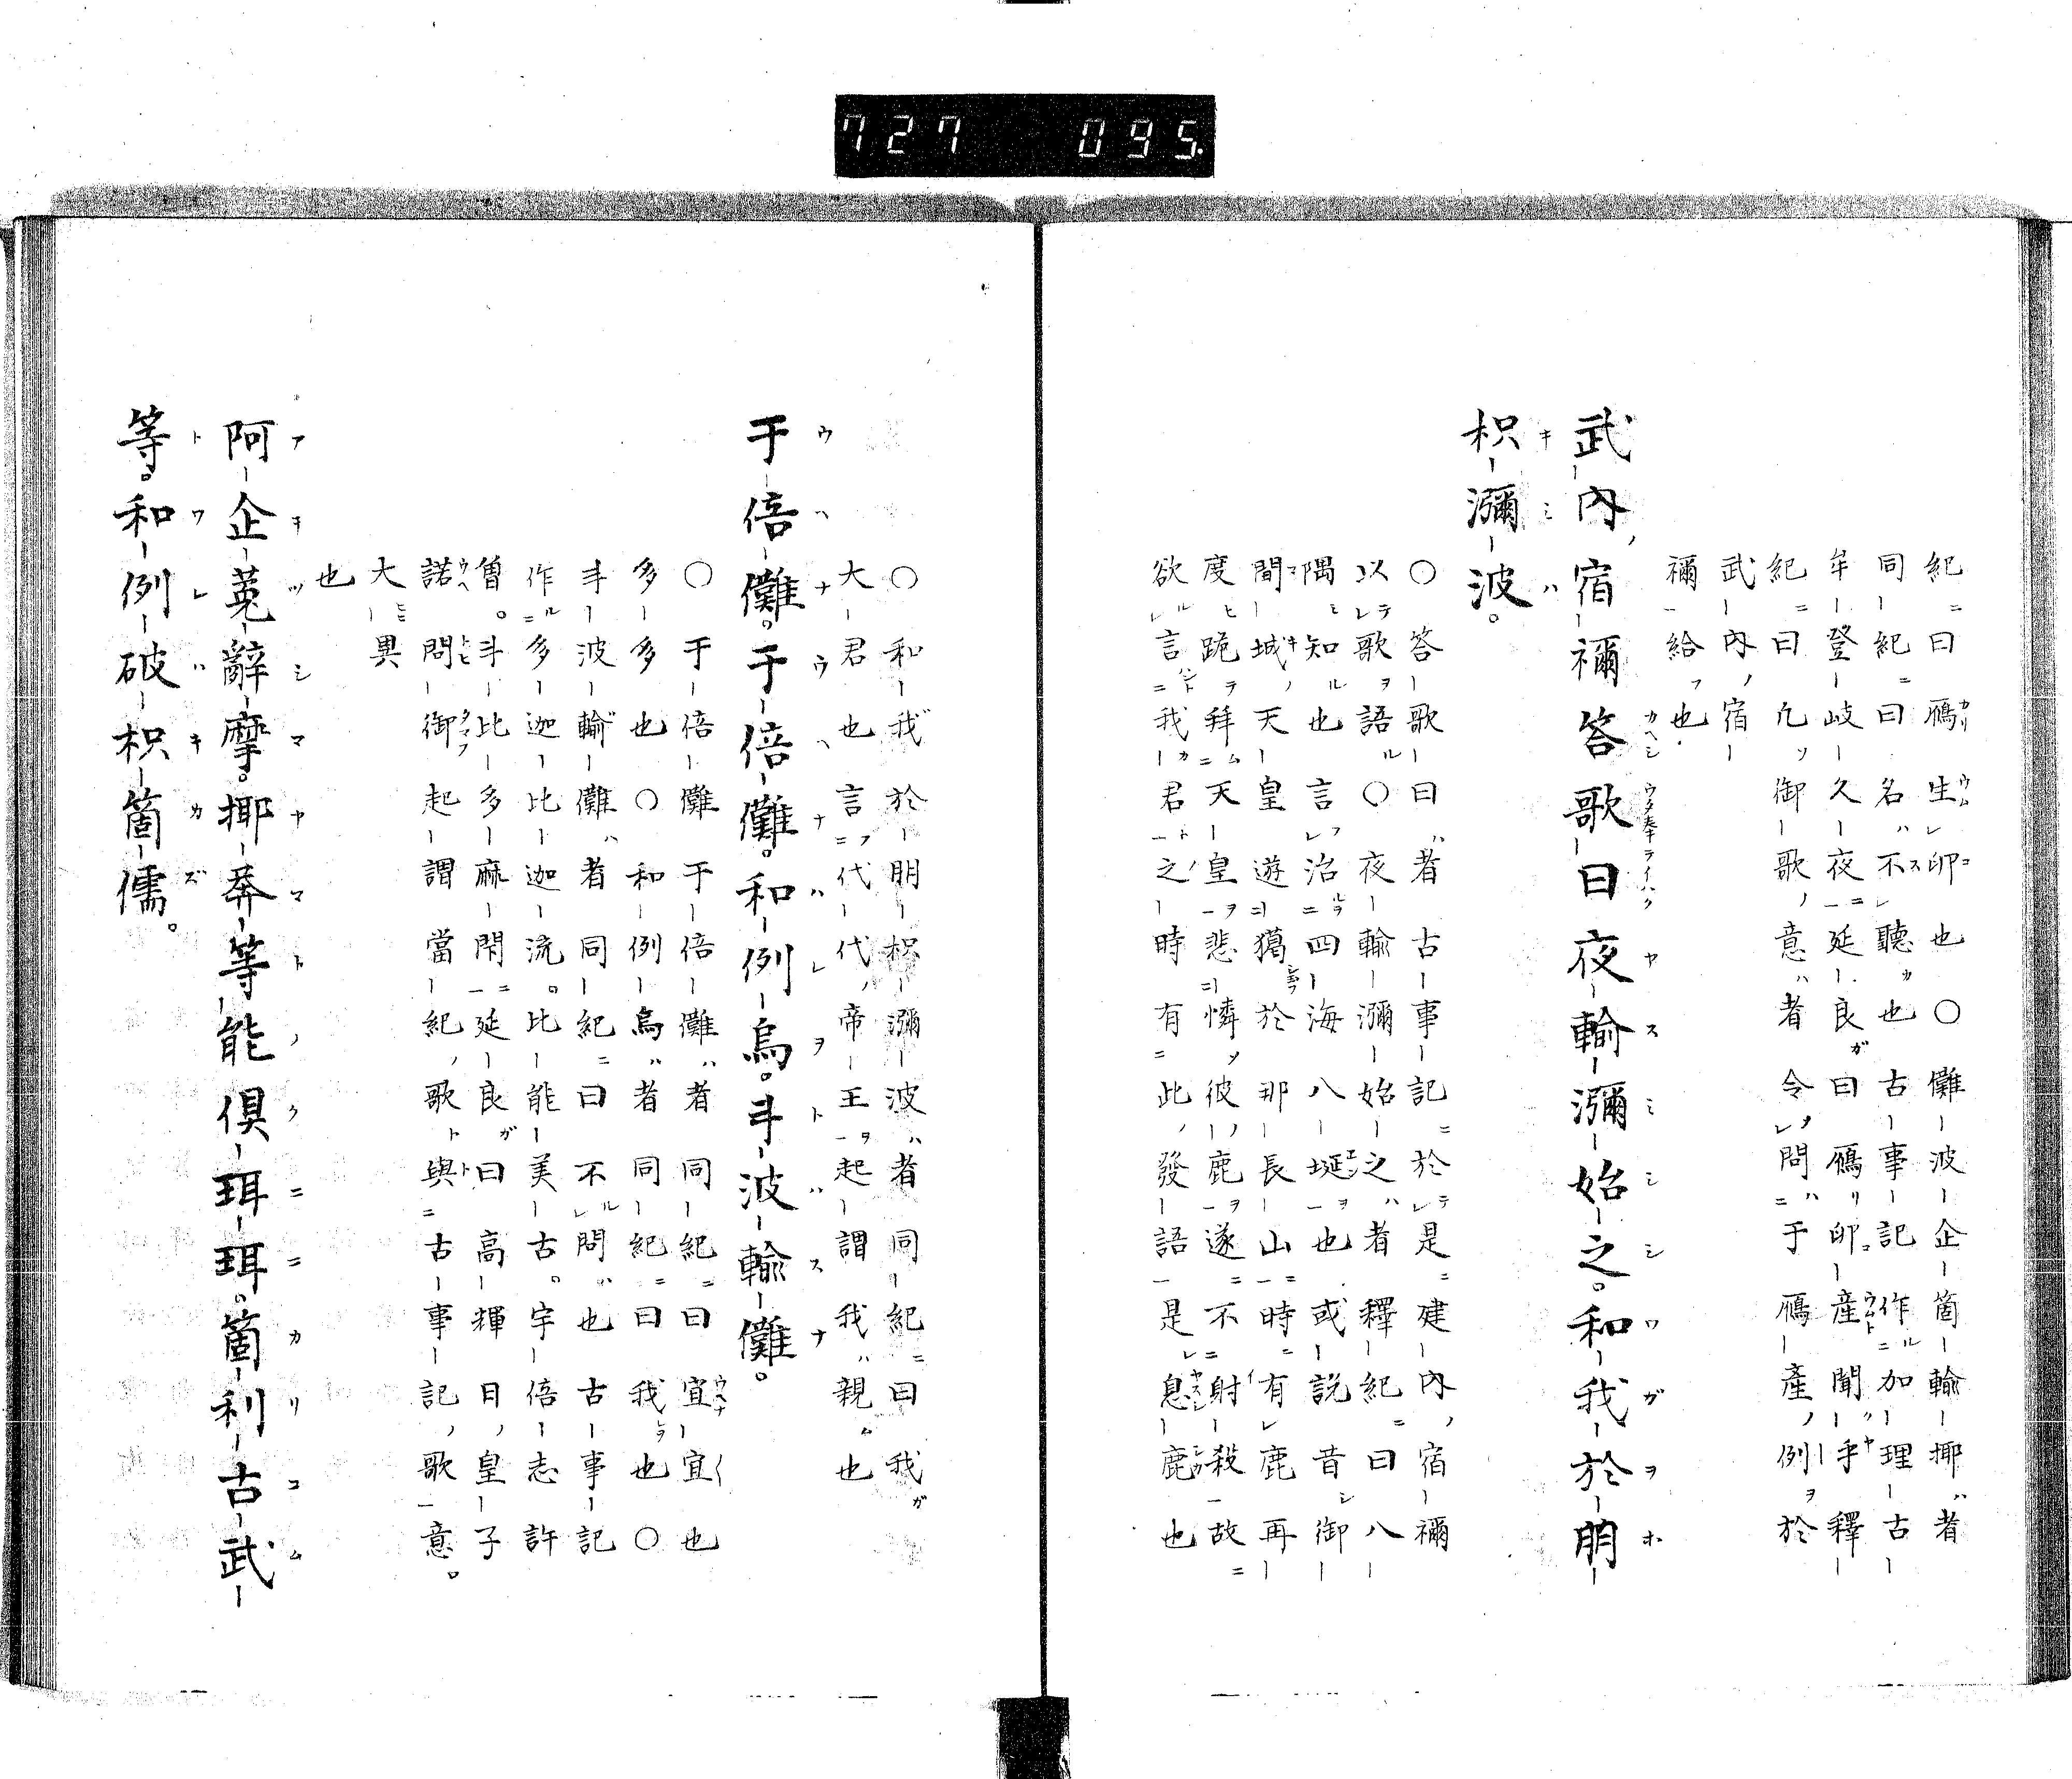 727 095.
紀ニ曰鴈生卵也〇儺波企箇輸揶者
同紀ニ曰名不聽也古事記作加理古
牟登岐久夜延良曰鴈卵產聞乎釋
紀ニ曰凡御歌意者令問于鴈產例於
武內宿
禰給也
武內宿禰答歌曰夜輸瀰始之。和我於朋
枳瀰波。
〇答歌曰者古事記於是建內宿禰
以歌語〇夜輸瀰始之者釋紀曰八
隅知也言治四海八埏也或說昔御
間城天皇遊獦於那長山時有鹿再
度跪拜天皇悲憐彼鹿遂不射殺故
欲言我君之時有此發語是息鹿也
〇和我於朋枳瀰波者同紀曰我
大君也言代代帝王起謂我親也
于倍儺。于倍儺。和例烏。斗波輸儺。
〇于倍儺于倍儺者同紀曰宜宜也
多多也〇和例烏者同紀曰我也〇
斗波輸儺者同紀曰不問也古事記
作多迦比迦流。比能美古。宇倍志許
曾。斗比多麻閇延良曰高輝日皇子
諾問御起謂當紀歌與古事記歌意。
大異
也
阿企菟辭摩。揶莽等能倶珥珥。箇利古武
等。和例破枳箇儒。